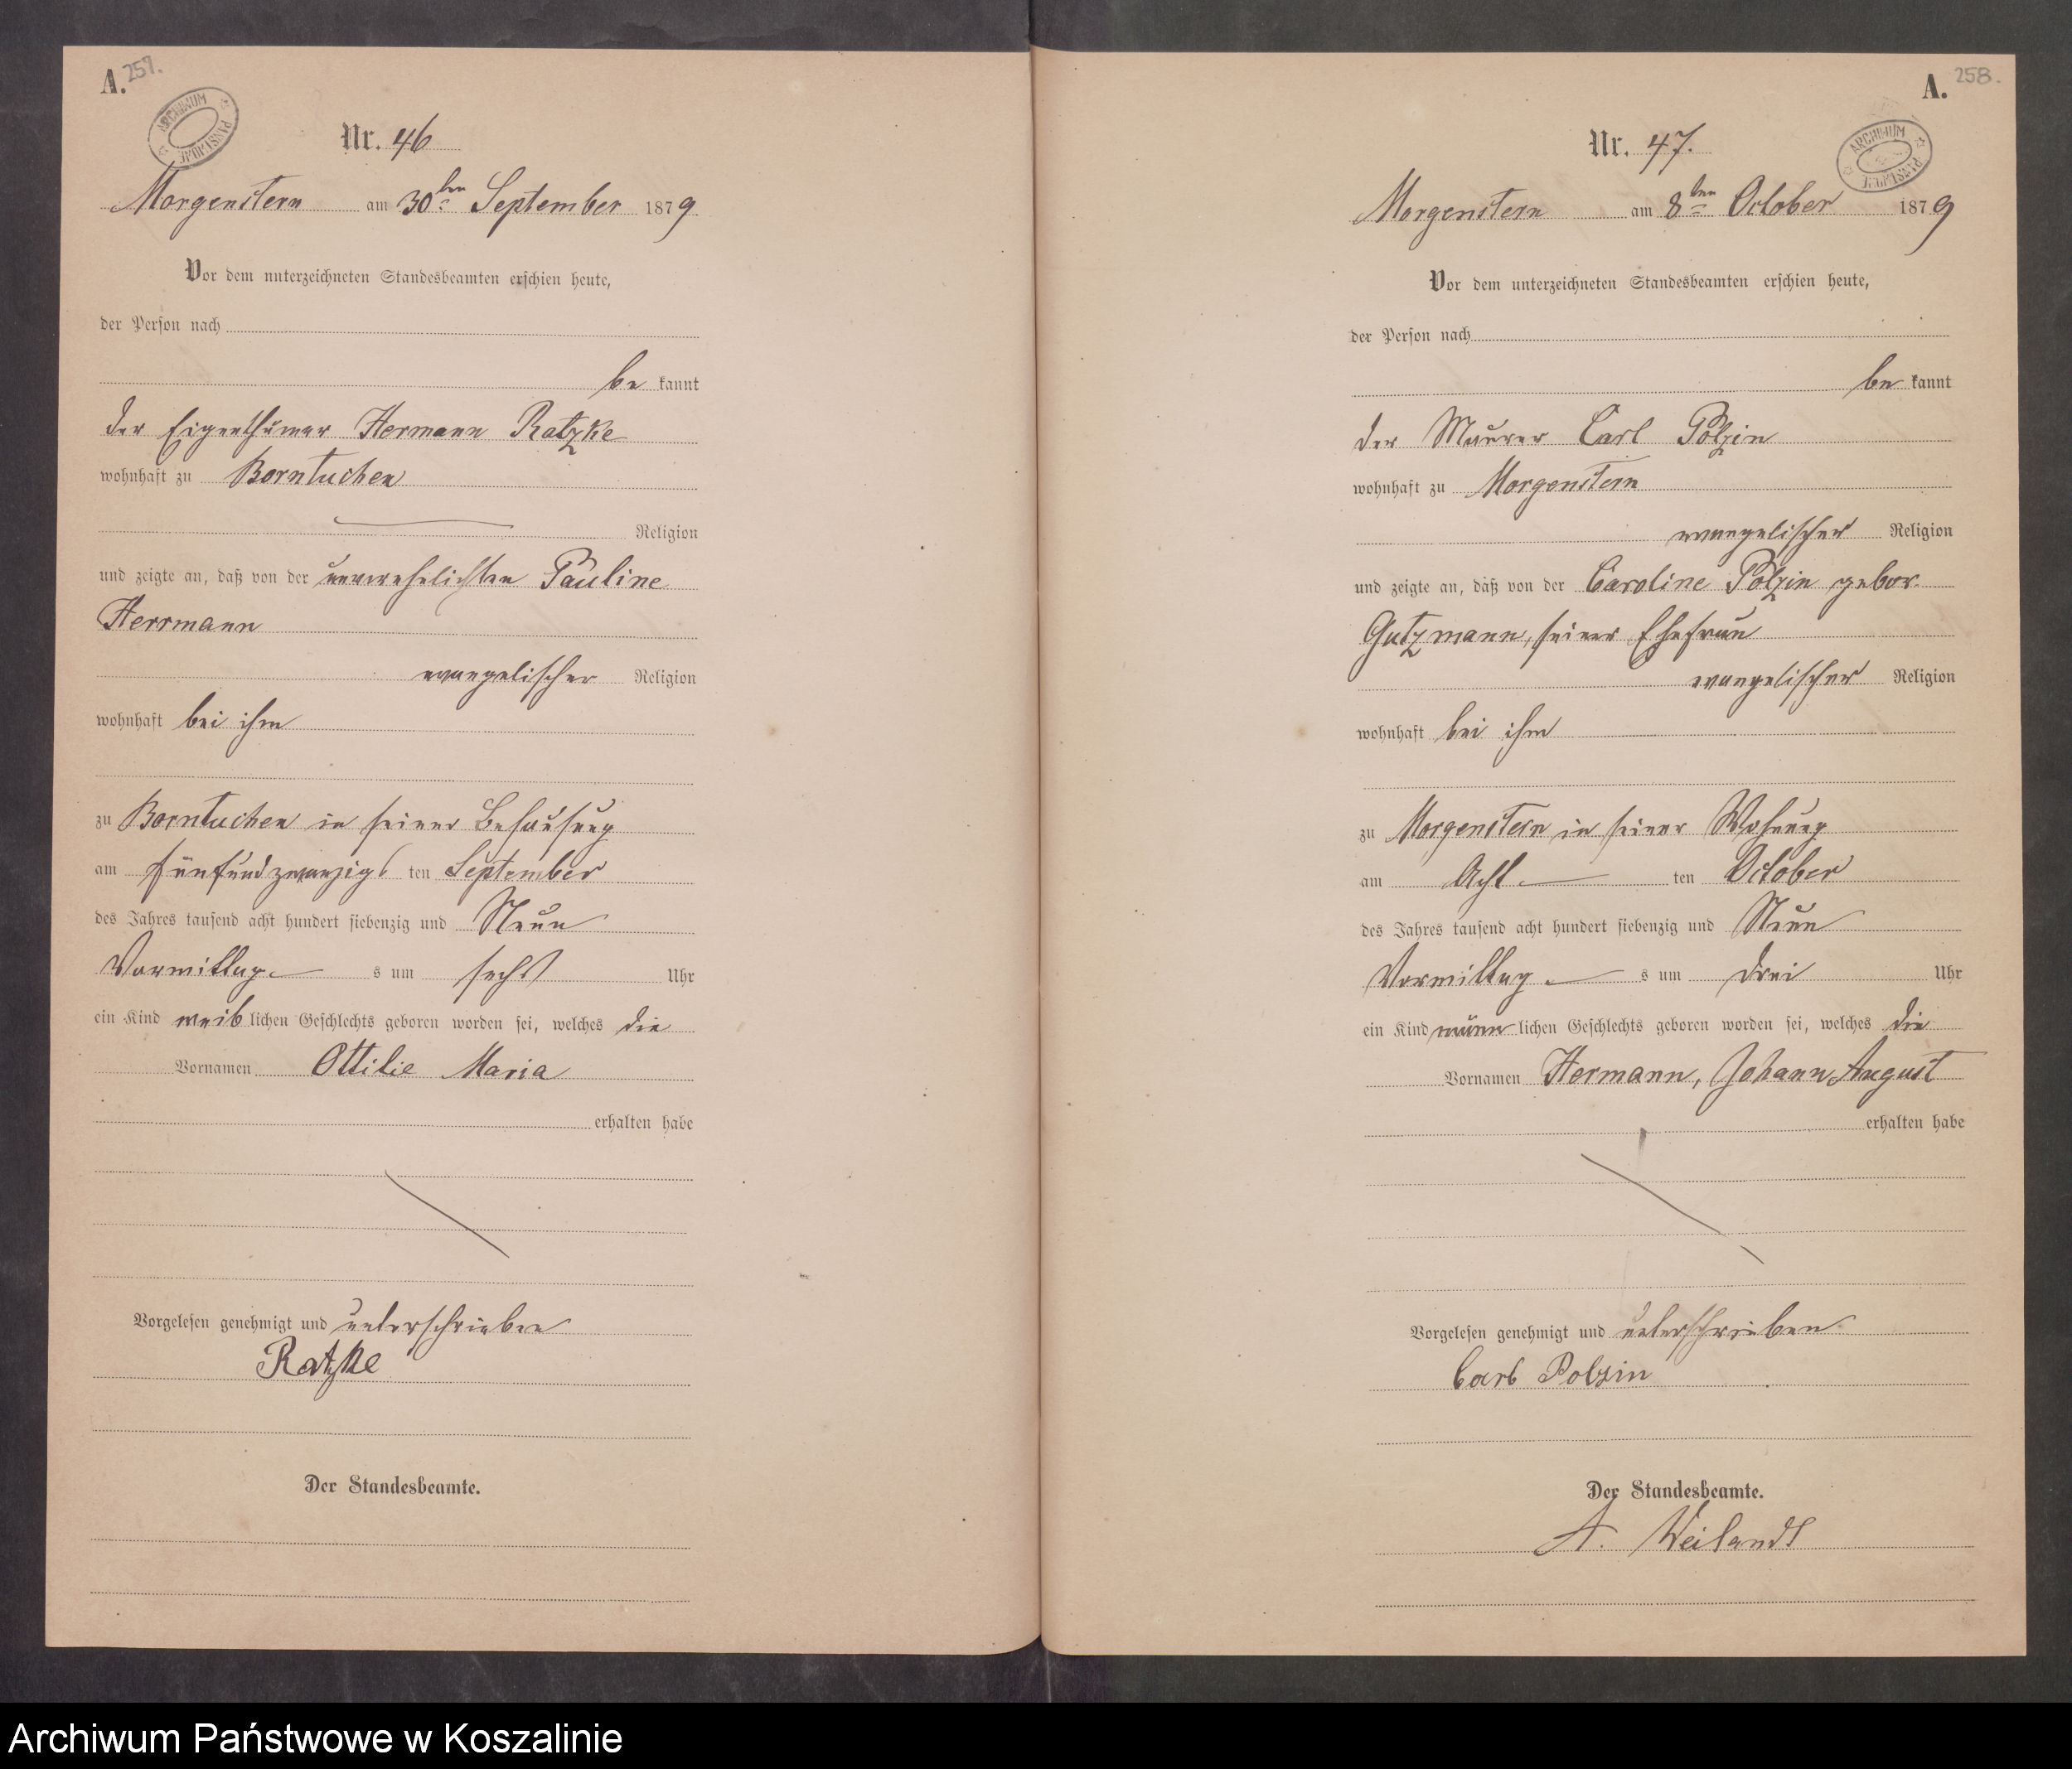 A. 257.
ARCHIWUM PAŃSTWOWE
Nr. 46
Morgenstern am 30ten September 1879
Vor dem unterzeichneten Standesbeamten erschien heute,
der Person nach
be kannt
der Eigenthümer Hermann Ratzke
wohnhaft zu Borntuchen
Religion
und zeigte an, daß von der unverehelichten Pauline
Herrmann
evangelischer Religion
wohnhaft bei ihm
zu Borntuchen in seiner Behausung
am fünfundzwanzigs ten September
des Jahres tausend acht hundert siebenzig und Neun
Vormittag s um sechs Uhr
ein Kind weib lichen Geschlechts geboren worden sei, welches die
Vornamen Ottilie Maria
erhalten habe
Vorgelesen genehmigt und unterschrieben
Ratzke
Der Standesbeamte.
A. 258.
ARCHIWUM PAŃSTWOWE
Nr. 47.
Morgenstern am 8ten October 1879
Vor dem unterzeichneten Standesbeamten erschien heute,
der Person nach
be kannt
der Maurer Carl Polzin
wohnhaft zu Morgenstern
evangelischer Religion
und zeigte an, daß von der Caroline Polzin gebor.
Gutzmann, seiner Ehefrau
evangelischer Religion
wohnhaft bei ihm
zu Morgenstern in seiner Wohnung
am Acht ten October
des Jahres tausend acht hundert siebenzig und Neun
Vormittag s um drei Uhr
ein Kind männ lichen Geschlechts geboren worden sei, welches die
Vornamen Hermann, Johann, August
erhalten habe
Vorgelesen genehmigt und unterschrieben
Carl Polzin
Der Standesbeamte.
A. Weilandt
Archiwum Państwowe w Koszalinie